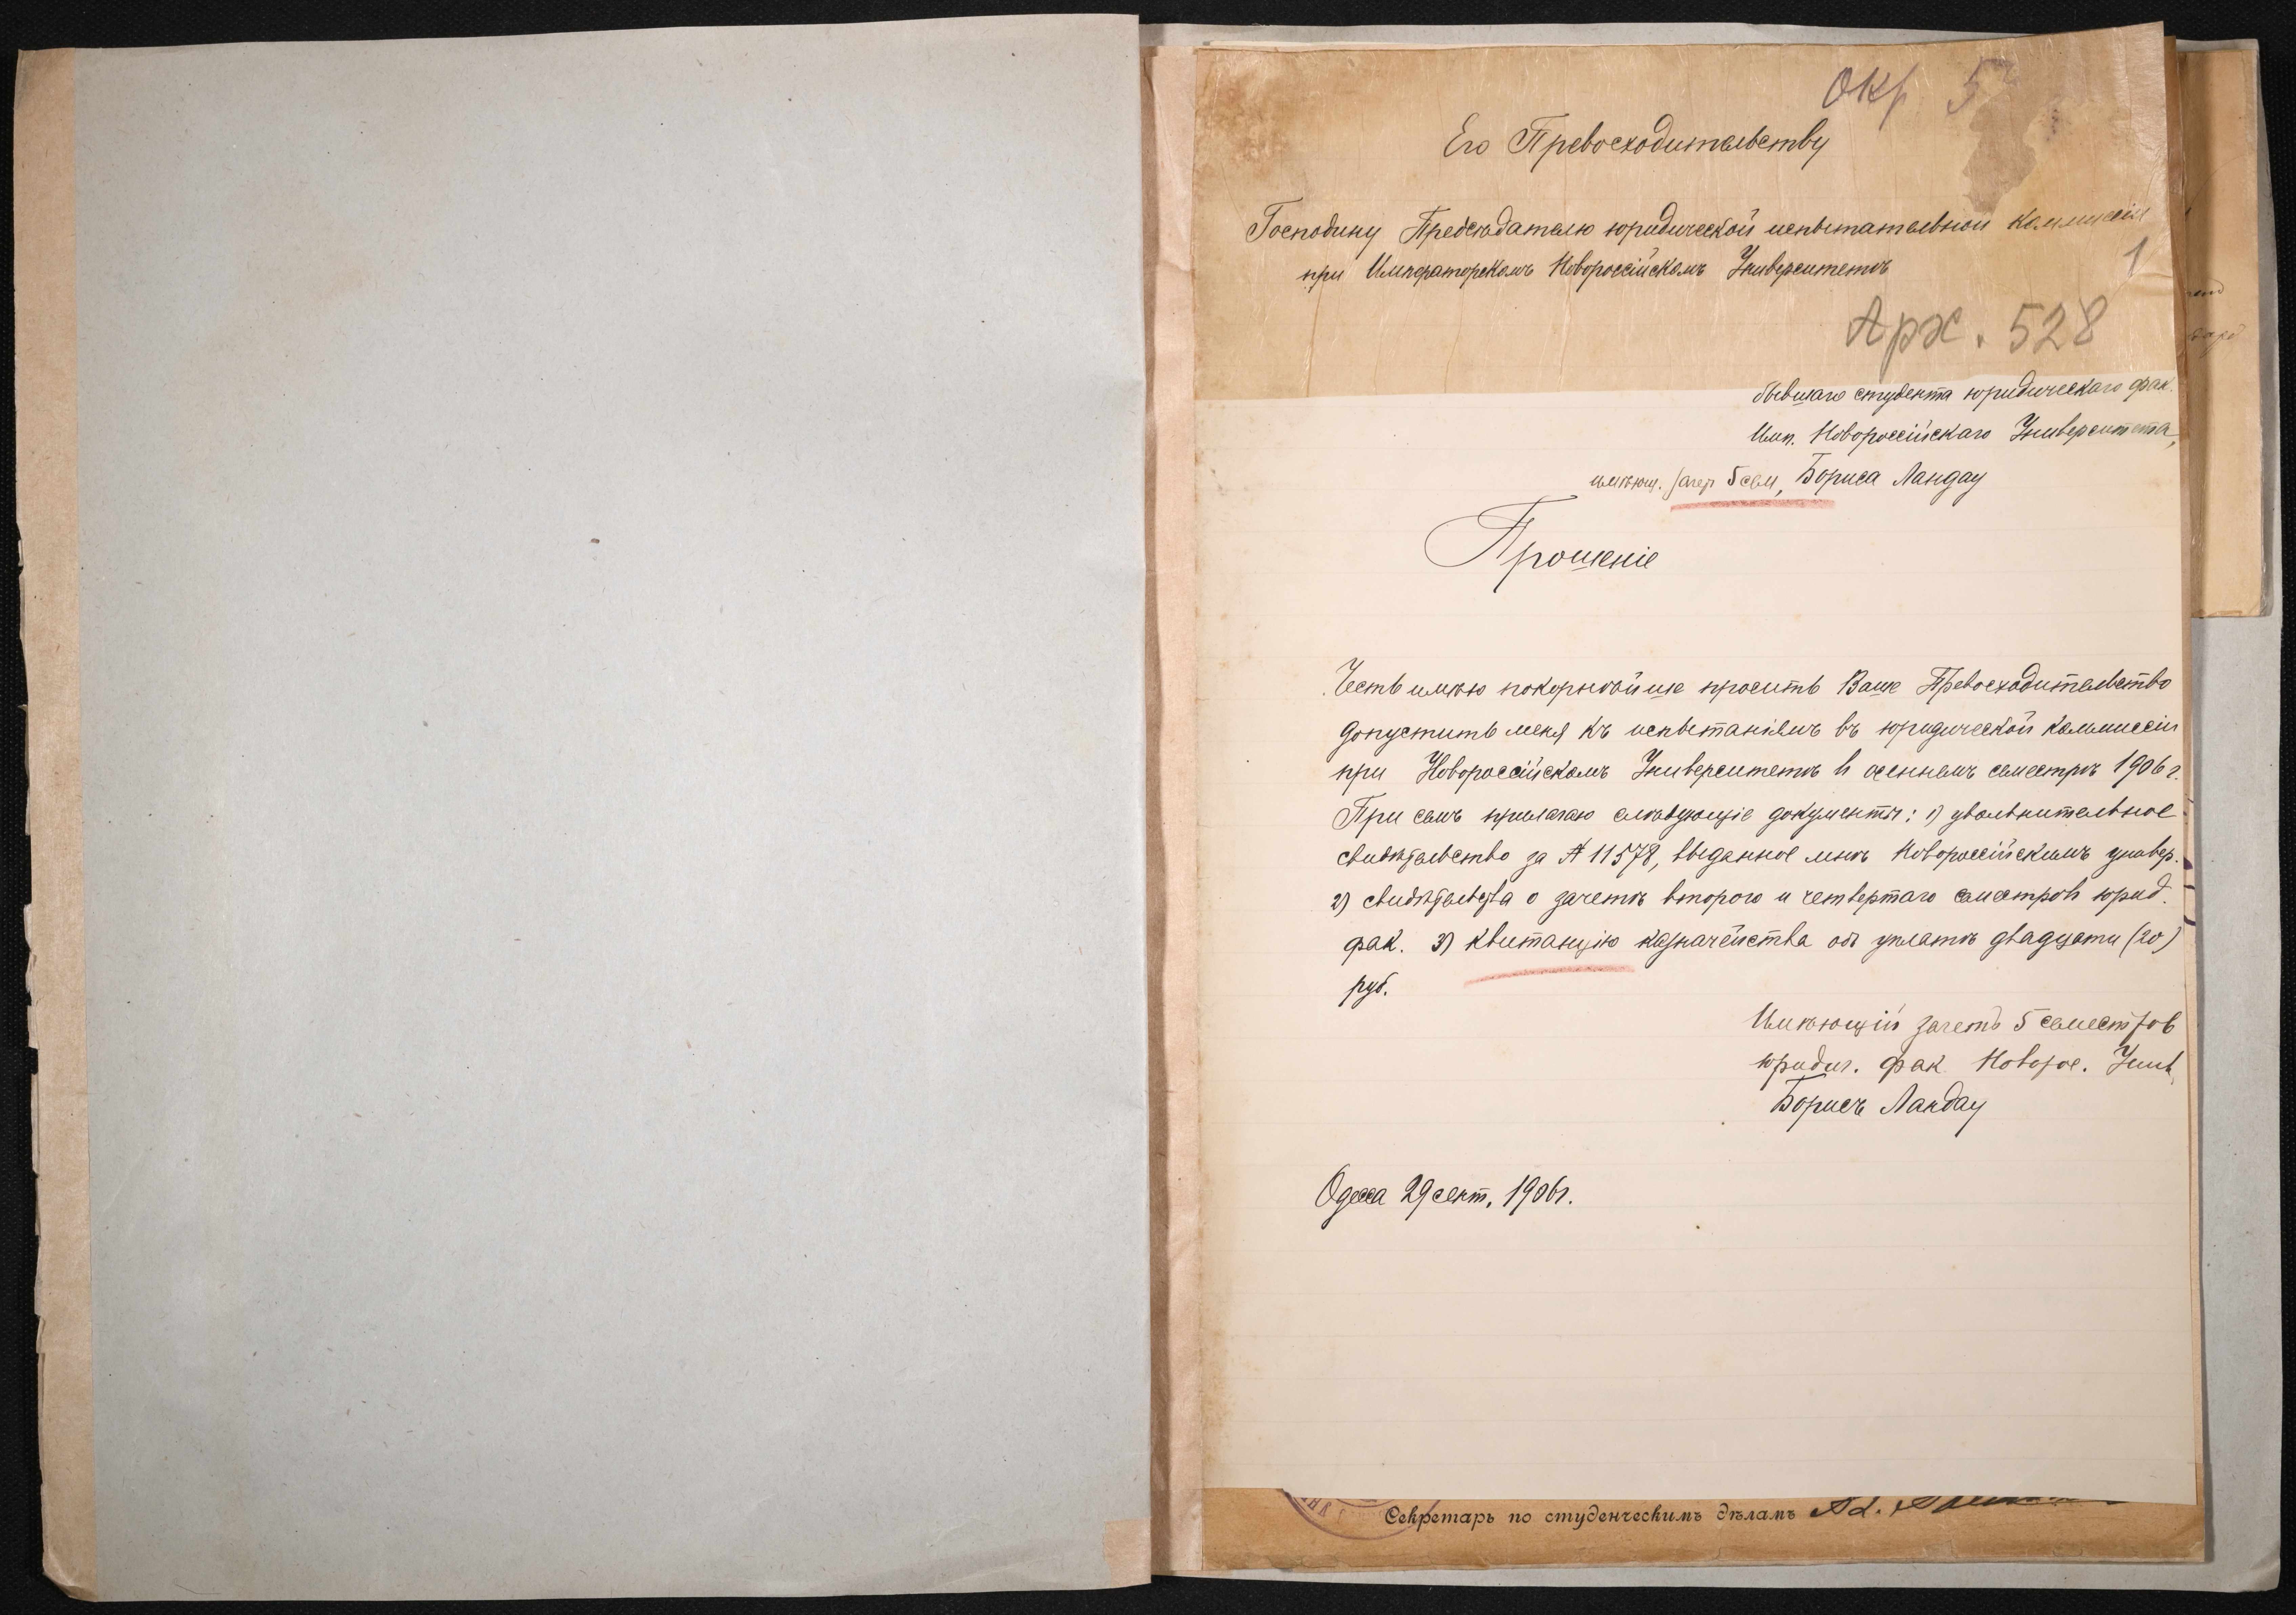 Окр. 5
Его Превосходительству
Господину Предсѣдателю юридической испытательной коммиссіи
при Императорскомъ Новороссійскомъ Университетѣ
1
Арх. 528
бывшаго студента юридическаго фак.
Имп. Новороссійскаго Университета,
имѣющ. зачет 5 сем, Бориса Ландау
Прошеніе
Честь имѣю покорнѣйше просить Ваше Превосходительство
допустить меня къ испытаніямъ въ юридической коммиссіи
при Новороссійскомъ Университетѣ в осеннемъ семестрѣ 1906 г.
При семъ прилагаю слѣдующіе документы: 1) увольнительное
свидѣтельство за № 11578, выданное мнѣ Новороссійскимъ универ.
2) свидѣтельства о зачетѣ второго и четвертаго семестров юрид.
фак. 3) квитанцію казначейства объ уплатѣ двадцати (20)
руб.
Имѣющій зачетъ 5 семестров
юридич. фак. Новорос. Унив.
Борисъ Ландау
Одесса 29 сент. 1906 г.
Секретарь по студенческимъ дѣламъ